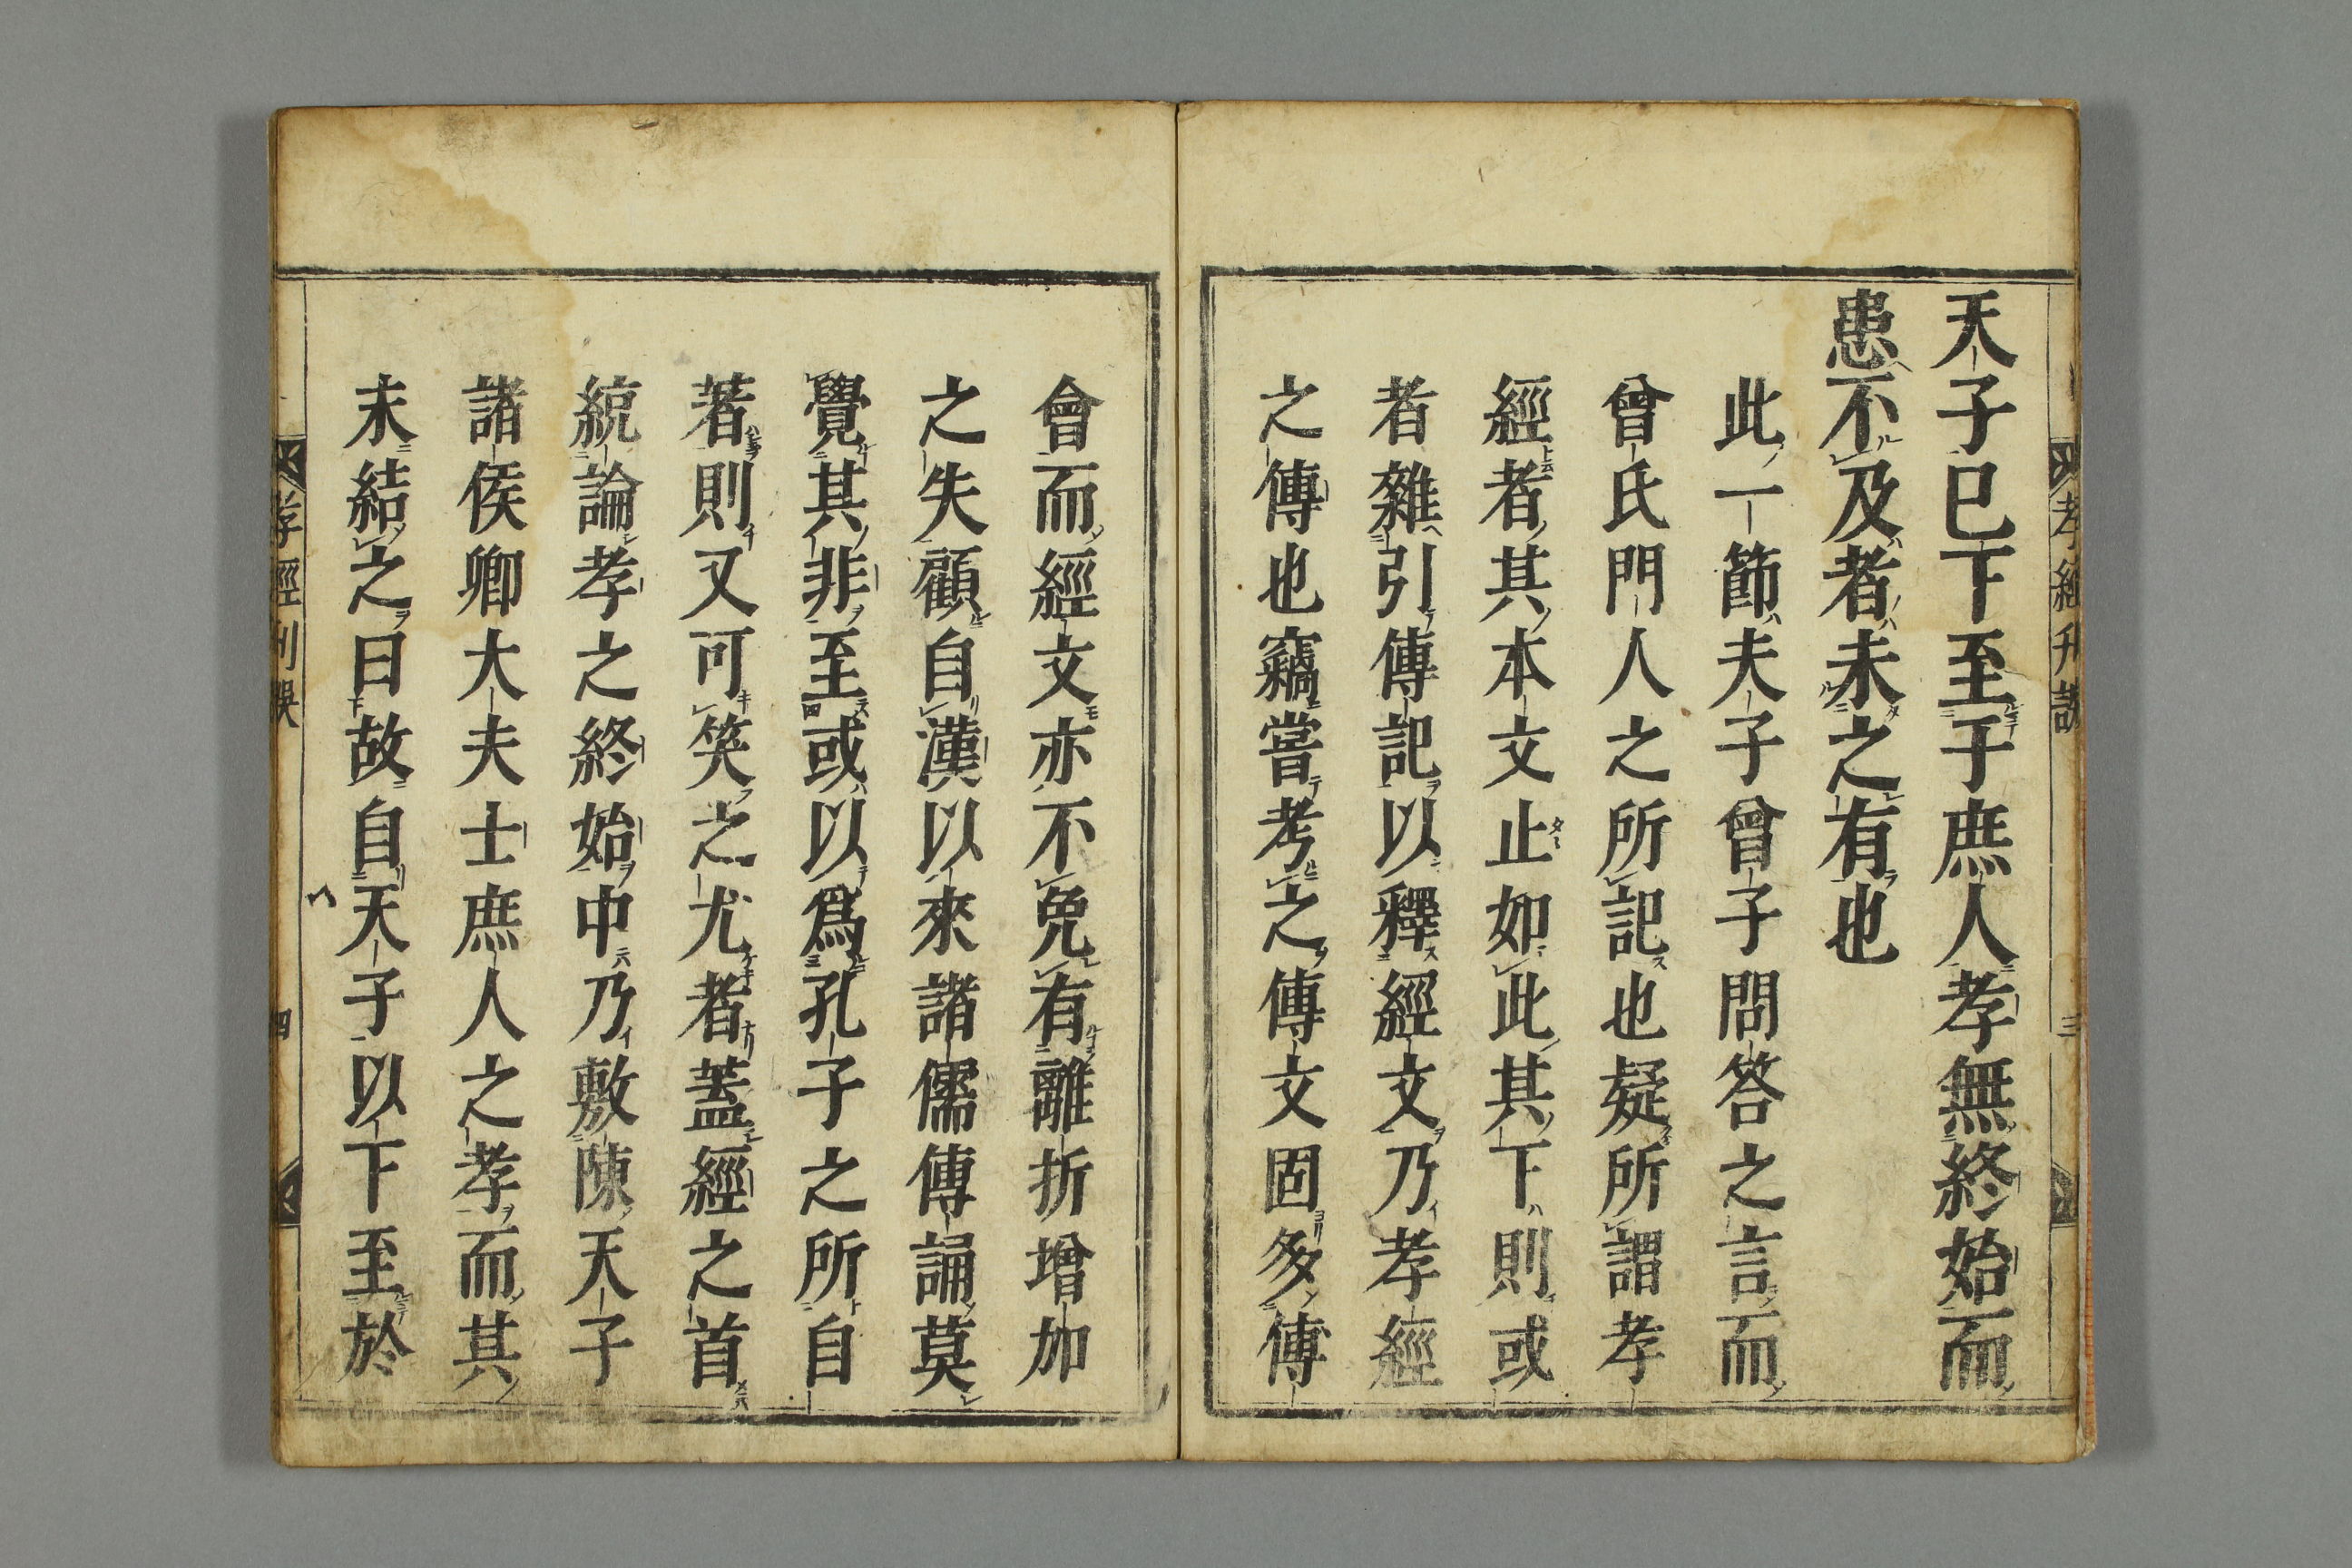 天子已下至于庶人孝無終始而
患不及者未之有也
此一節夫子曾子問答之言而
曾氏門人之所記也疑所謂孝
經者其本文止如此其下則或
者雜引傳記以釋經文乃孝經
之傳也竊嘗考之傳文固多傅
會而經文亦不免有離析增加
之失顧自漢以來諸儒傳誦莫
覺其非至或以爲孔子之所自
著則又可笑之尤者蓋經之首
統論孝之終始中乃敷陳天子
諸侯卿大夫士庶人之孝而其
末結之曰故自天子以下至於
孝經刊誤
三
孝經刊誤
四